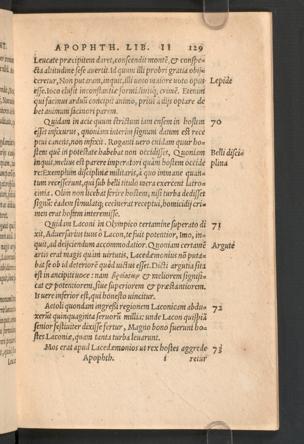 APOPHTH. LIB. II 129
Leucate præcipitem daret, conscendit montē, & conspe-
cta altitudine sese auertit. Id quum illi probri gratia obij-
ceretur, Non putaram, inquit, illi uoto maiore uoto opus Lepide
esse. Ioco elusit inconstantiæ formidinisq; crimē. Etenim
qui facinus arduū concipit animo, prius à dijs optare de
bet animum facinori parem.
Quidam in acie quum strictum iam ensem in hostem 70
esset incussurus, quoniam interim signum datum est rece
ptui canēs, non inflixit. Roganti uero cuidam quur ho-
stem quē in potestate habebat non occidisset, Quoniam Belli disci
inquit, melius est parere imperatori quàm hostem occide plina
re. Exemplum disciplinæ militaris, à quo immane quan-
tum recesserunt, qui sub belli titulo mera exercent latro-
cinia. Olim non licebat ferire hostem, nisi turba dedisset
signū: eadem si uetuisset, homicidij cri-
men erat hostem interemisse.
Quidam Laconi in Olympico certamine superato di 71
xit, Aduersarius tuus ô Lacon, te fuit potentior, Imo, in-
quit, ad deijciendum accommodatior. Quoniam certamē Argutè
artis erat magis quàm uirtutis, Lacedæmonius nō puta-
bat se ob id deteriorē quòd uictus esset. Dicti argutia sita
est in ancipiti uoce: nam & meliorem signifi-
cat & potentiorem, siue superiorem & præstantiorem.
Is uere inferior est, qui honesto uincitur.
Aetoli quondam ingressi regionem Laconicam abdu- 72
xerūt quinquaginta seruorū millia: unde Lacon quispiā
senior festiuiter dixisse fertur, Magno bono fuerunt ho-
stes Laconiæ, quam tanta turba leuarunt.
Mos erat apud Lacedæmonios ut rex hostes aggrede 73
Apophth. i retur